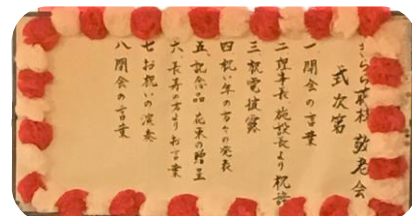 きらら藤枝 敬老会
式次第
一 開会の言葉
二 理事長 施設長より祝辞
三 祝電披露
四 祝い年の方々の発表
五 記念品 花束の贈呈
六 長寿の方よりお言葉
七 お祝いの演奏
八 閉会の言葉